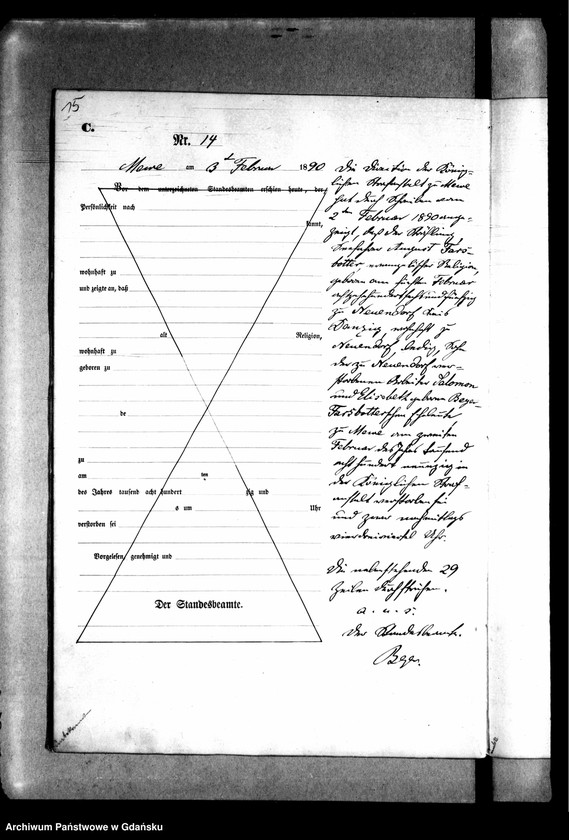 15
C.
Nr. 14
Mewe am 3ten Februar 1890
Vor dem unterzeichneten Standesbeamten erschien heute, der
Persönlichkeit nach
kannt,
wohnhaft zu
und zeigte an, daß
alt Religion,
wohnhaft zu
geboren zu
de
zu
am ten
des Jahres tausend acht hundert zig und
s um Uhr
verstorben sei
Vorgelesen, genehmigt und
Der Standesbeamte.
Die Direction der König-
lichen Strafanstalt zu Mewe
hat durch Schreiben vom
2ten Februar 1890 ange-
zeigt, daß der Sträfling,
August Fars-
botter evangelischer Religion,
geboren am Februar
achtzehnhundert
zu Neuendorf Kreis
Danzig, wohnhaft zu
Neuendorf, ledig, Sohn
der zu Neuendorf ver-
storbenen Arbeiter Salomon
und Elisabeth geborene
Farsbotterschen Eheleute
zu Mewe am zweiten
Februar des Jahres tausend
acht hundert neunzig in
der Königlichen Straf-
anstalt verstorben sei
und zwar nachmittags
vier dreiviertel Uhr.
Die nebenstehenden 29
Zeilen durchstrichen.
a. u. s.
Der Standesbeamte.
Archiwum Państwowe w Gdańsku